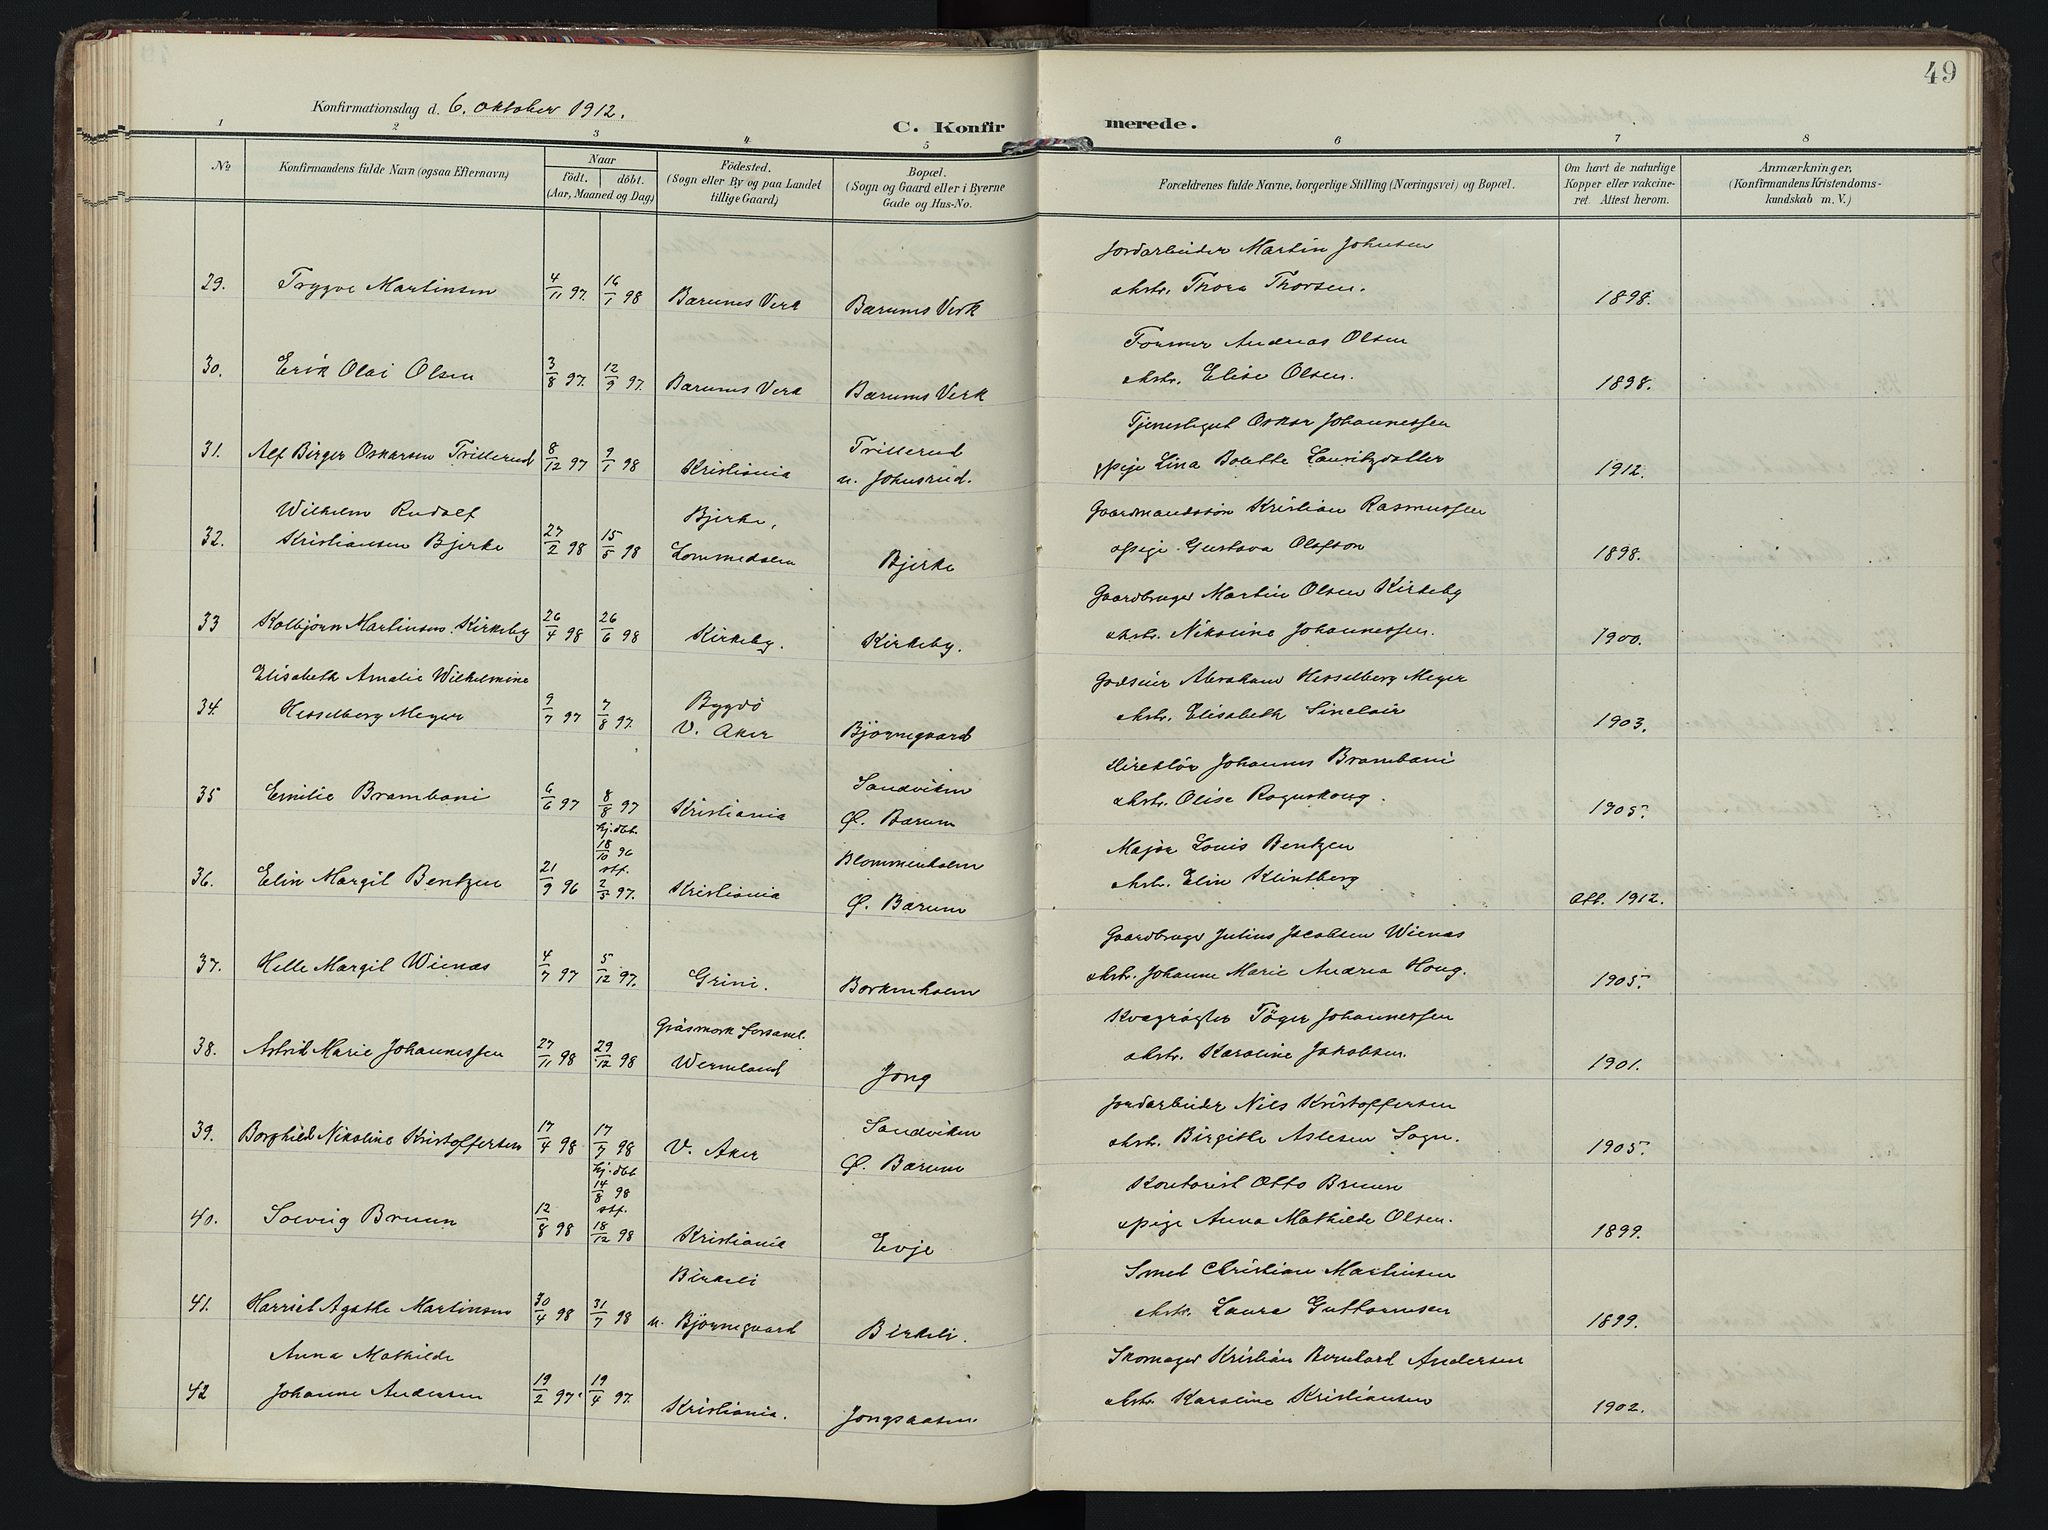 49
Konfirmationsdag d. 6. Oktober 1912.
C. Konfirmerede.
1 2 3 4 5 6 7 8
No
Konfirmandens fulde Navn (ogsaa Efternavn)
Naar
födt. döbt.
(Aar, Maaned og Dag)
Födested.
(Sogn eller By og paa Landet
tillige Gaard)
Bopæl.
(Sogn og Gaard eller i Byerne
Gade og Hus-No.
Forældrenes fulde Navne, borgerlige Stilling (Næringsvei) og Bopæl.
Om havt de naturlige
Kopper eller vakcine-
ret. Attest herom.
Anmærkninger,
(Konfirmandens Kristendoms-
kundskab m. V.)
Jordarbeider Martin Johnsen
29. Trygve Martinsen 4/11 97. 16/1 98 Bærums Verk Bærums Verk
Thora Thorsen. 1898.
Former Andreas Olsen
30. Erik Olai Olsen 3/8 97. 12/9 97. Bærums Verk Bærums Verk
Elise Olsen. 1898.
Tjenestegut Oskar Johannessen
31. Alf Birger Oskarsen Trillerud 8/12 97 9/1 98 Kristiania Trillerud
u. Johnsrud.
pige Lina Bolette Lauritzdatter 1912.
Wilhelm Rudolf Bjerke, Gaardmandssøn Kristian Rasmussen
32. Kristiansen Bjerke 27/2 98 15/5 98 Lommedalen Bjerke
pige Gustava Olafson 1898.
Gaardbruger Martin Olsen Kirkeby
33 Kolbjørn Martinsen Kirkeby 26/4 98 26/6 98 Kirkeby. Kirkeby.
Nikoline Johannessen. 1900.
Elisabeth Amalie Wilhelmine Godseier Abraham Hesselberg Meyer
34. Hesselberg Meyer 9/7 97 7/8 97. Bygdö
V. Aker Björnegaard
Elisabeth Sinclair 1903.
Direktör Johannes Brambani
35 Emilie Brambani 6/6 97 8/8 97 Kristiania Sandviken
Ø. Bærum
Olise Rognskoug. 1905.
hj. dbt.
18/10 96
stf. Major Louis Bentzen
36. Elin Margit Bentzen 21/9 96 2/5 97. Kristiania Blommenholm
Ø. Bærum
Elin Klintberg Att. 1912.
Gaardbruger Julius Jacobsen Wienæs
37. Helle Margit Wienæs 4/7 97 5/12 97. Grini. Borkenholm
Johanne Marie Andrea Houg. 1905.
Gräsmark Forsaml. Kvægrögter Töger Johannessen
38. Astrid Marie Johannessen 27/11 98 29/12 98 Wermland Jong
Karoline Jakobsen. 1901.
Jordarbeider Nils Kristoffersen
39. Borghild Nikoline Kristoffersen 17/4 98 17/7 98 V. Aker Sandviken
Ø. Bærum
Birgitte Aslesen Sogn. 1905.
hj. dbt
14/8 98
stf. Kontorist Otto Bruun
40. Solveig Bruun 12/8 98 18/12 98 Kristiania Evje
pige Anna Mathilde Olsen. 1899.
Birkeli Smed Christian Martinsen
41. Harriet Agathe Martinsen 30/4 98 31/7 98 u. Björnegaard Birkeli.
Laura Guttormsen 1899.
Anna Mathilde Skomager Kristian Bernhard Andersen
42 Johanne Andersen 19/2 97. 19/4 97. Kristiania. Jongsaasen
Karoline Kristiansen 1902.